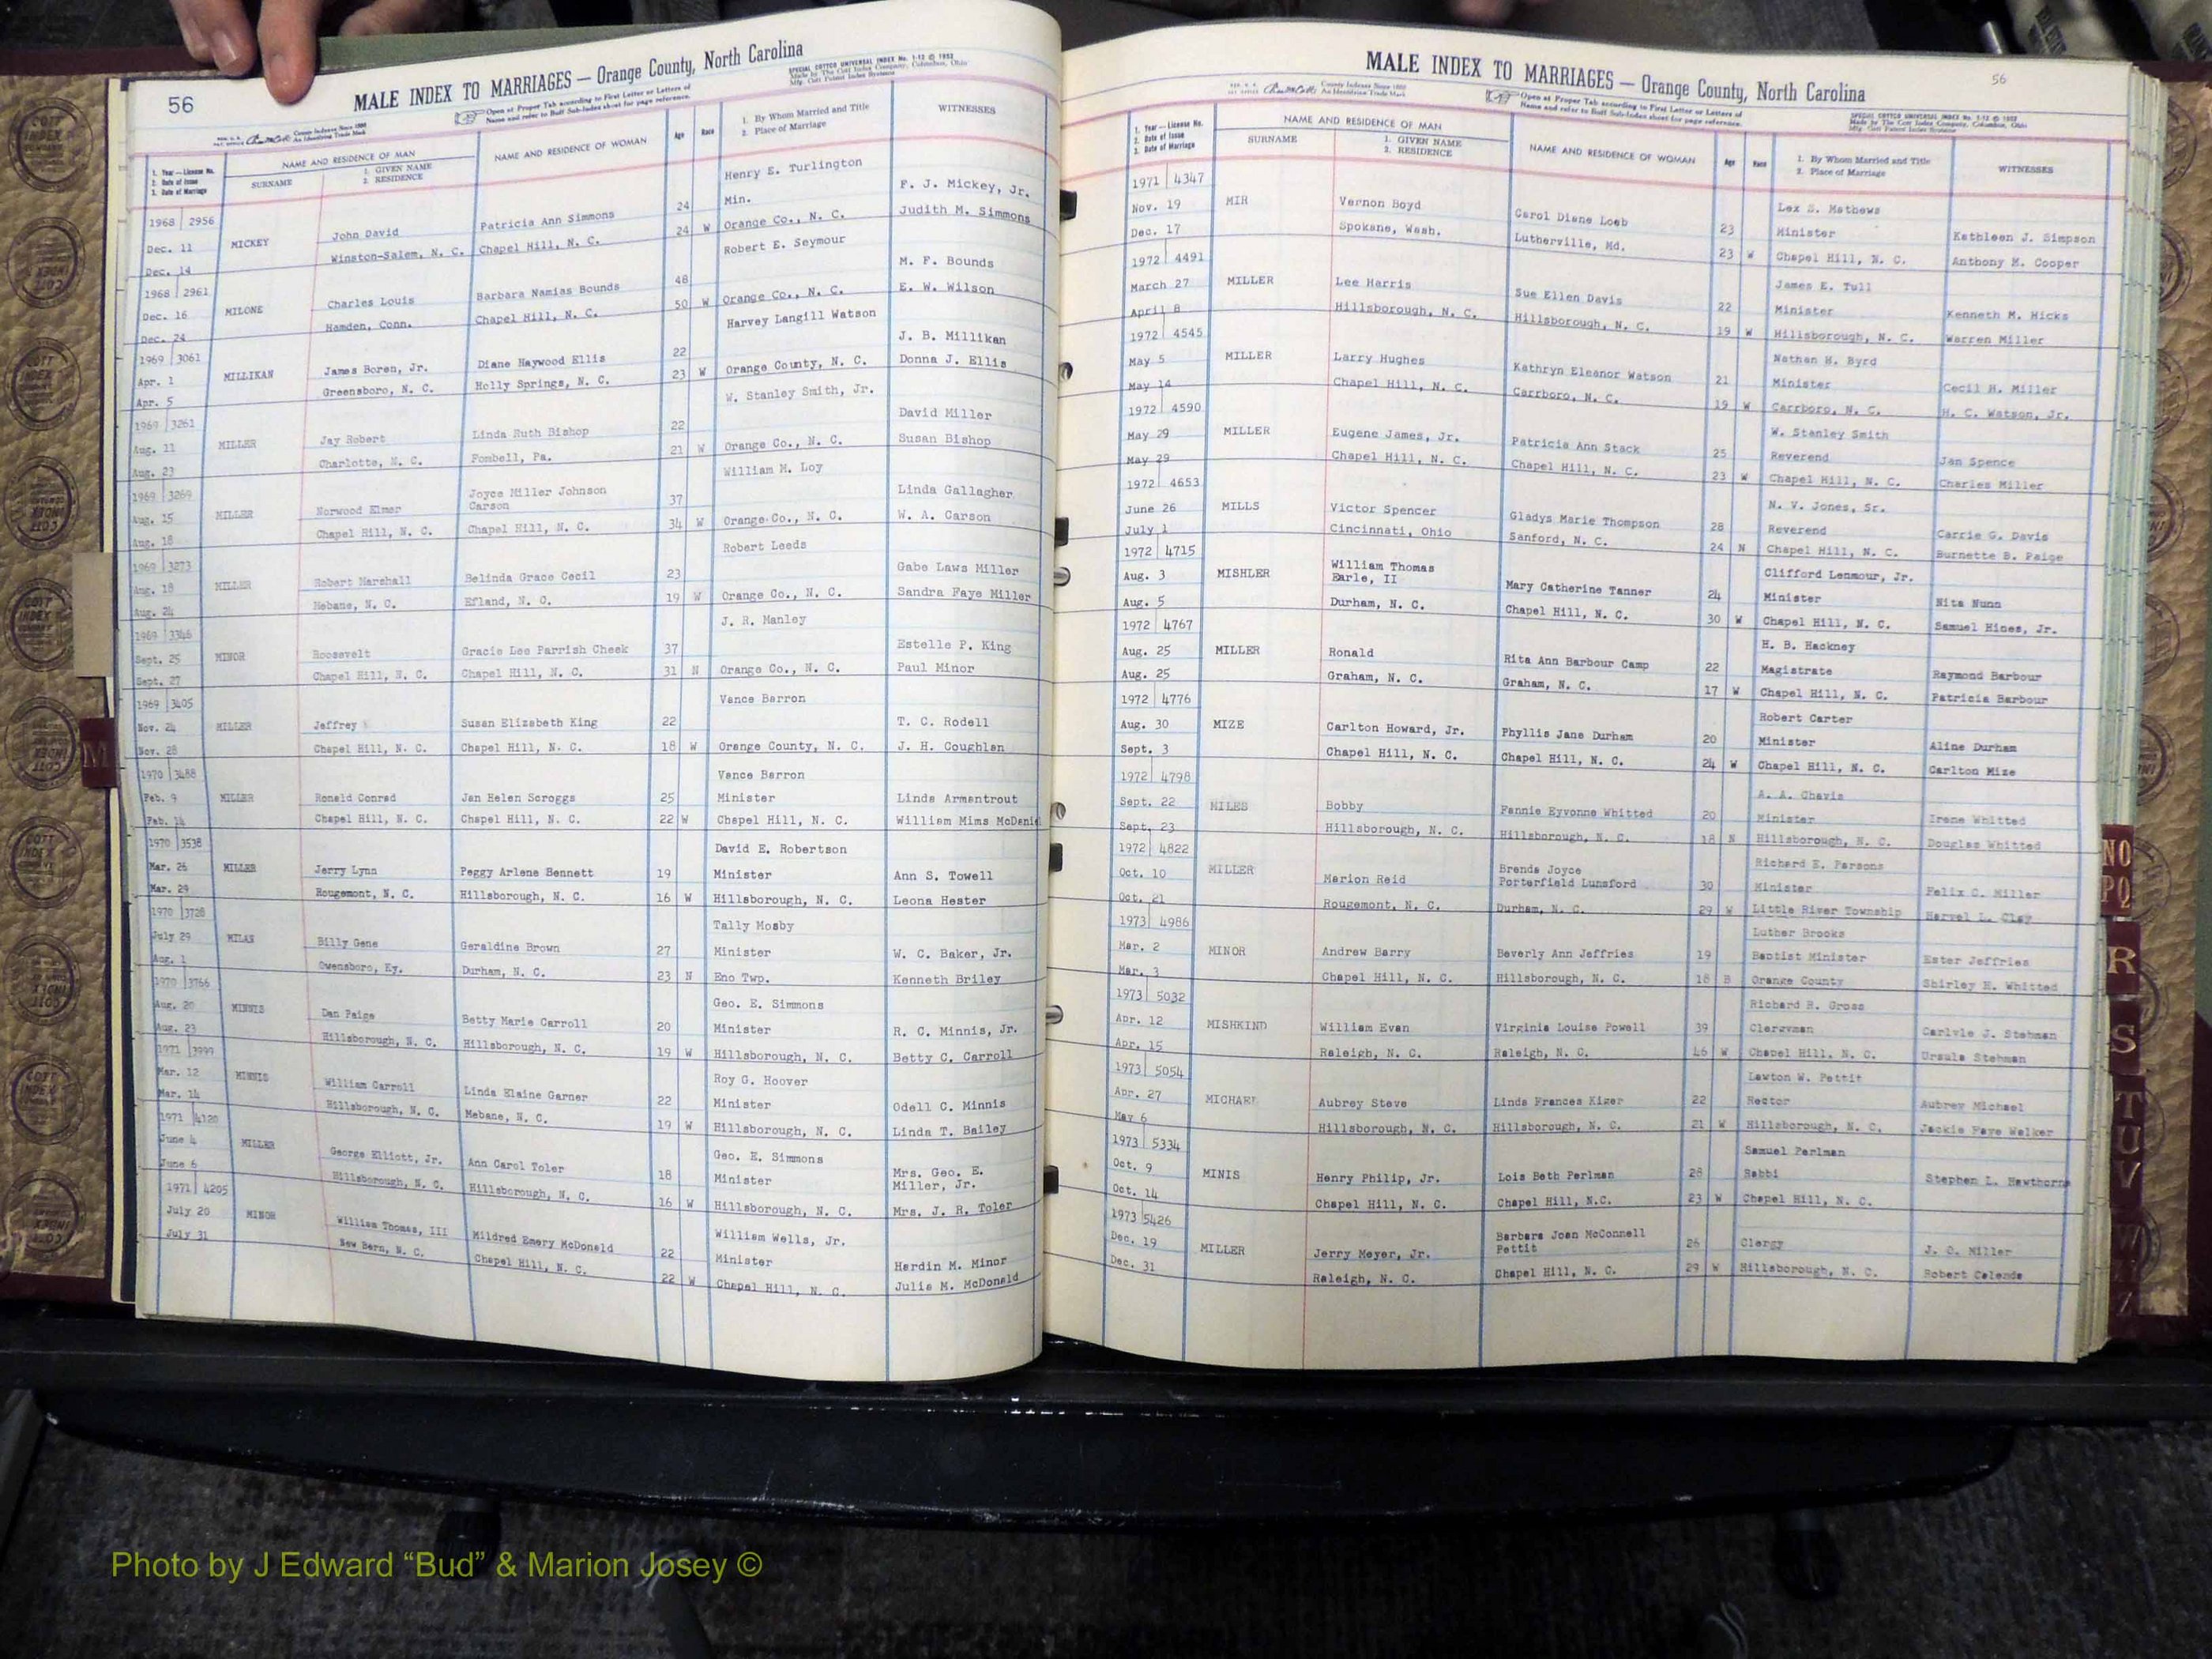 56
MALE INDEX TO MARRIAGES — Orange County, North Carolina
SPECIAL COTTCO UNIVERSAL INDEX No. 1-12 © 1952
Made by The Cott Index Company, Columbus, Ohio
Mfg. Cott Patent Index Systems
County Indexes Since 1888
An Identifying Trade Mark
Open at Proper Tab according to First Letter or Letters of
Name and refer to Buff Sub-Index sheet for page reference.
1. Year — License No.
2. Date of Issue
3. Date of Marriage
NAME AND RESIDENCE OF MAN
SURNAME
1. GIVEN NAME
2. RESIDENCE
NAME AND RESIDENCE OF WOMAN
Age
Race
1. By Whom Married and Title
2. Place of Marriage
WITNESSES
Henry E. Turlington
1968 2956 Patricia Ann Simmons 24 Min. F. J. Mickey, Jr.
Dec. 11 MICKEY John David 24 W Orange Co., N. C. Judith M. Simmons
Dec. 14 Winston-Salem, N. C. Chapel Hill, N. C.
Robert E. Seymour
1968 2961 Barbara Namias Bounds 48 M. F. Bounds
Dec. 16 MILONE Charles Louis 50 W Orange Co., N. C. E. W. Wilson
Dec. 24 Hamden, Conn. Chapel Hill, N. C.
Harvey Langill Watson
1969 3061 Diane Haywood Ellis 22 J. B. Millikan
Apr. 1 MILLIKAN James Boren, Jr. 23 W Orange County, N. C. Donna J. Ellis
Apr. 5 Greensboro, N. C. Holly Springs, N. C.
W. Stanley Smith, Jr.
1969 3261 Linda Ruth Bishop 22 David Miller
Aug. 11 MILLER Jay Robert 21 W Orange Co., N. C. Susan Bishop
Aug. 23 Charlotte, N. C. Fombell, Pa.
William M. Loy
1969 3269 Joyce Miller Johnson Carson 37 Linda Gallagher
Aug. 15 MILLER Norwood Elmer 34 W Orange Co., N. C. W. A. Carson
Aug. 18 Chapel Hill, N. C. Chapel Hill, N. C.
Robert Leeds
1969 3273 Belinda Grace Cecil 23 Gabe Laws Miller
Aug. 18 MILLER Robert Marshall 19 W Orange Co., N. C. Sandra Faye Miller
Aug. 24 Mebane, N. C. Efland, N. C.
J. R. Manley
1969 3346 Gracie Lee Parrish Cheek 37 Estelle P. King
Sept. 25 MINOR Roosevelt 31 N Orange Co., N. C. Paul Minor
Sept. 27 Chapel Hill, N. C. Chapel Hill, N. C.
Vance Barron
1969 3405
Nov. 24 MILLER Jeffrey Susan Elizabeth King 22 T. C. Rodell
Nov. 28 Chapel Hill, N. C. Chapel Hill, N. C. 18 W Orange County, N. C. J. H. Coughlan
1970 3488 Vance Barron
Feb. 9 MILLER Ronald Conrad Jan Helen Scroggs 25 Minister Linda Armentrout
Feb. 14 Chapel Hill, N. C. Chapel Hill, N. C. 22 W Chapel Hill, N. C. William Mims McDaniel
1970 3538 David E. Robertson
Mar. 26 MILLER Jerry Lynn Peggy Arlene Bennett 19 Minister Ann S. Towell
Mar. 29 Rougemont, N. C. Hillsborough, N. C. 16 W Hillsborough, N. C. Leona Hester
1970 3728 Tally Mosby
July 29 MILAN Billy Gene Geraldine Brown 27 Minister W. C. Baker, Jr.
Aug. 1 Owensboro, Ky. Durham, N. C. 23 N Eno Twp. Kenneth Briley
1970 3766 Geo. E. Simmons
Aug. 20 MINNIS Dan Paige Betty Marie Carroll 20 Minister R. C. Minnis, Jr.
Aug. 23 Hillsborough, N. C. Hillsborough, N. C. 19 W Hillsborough, N. C. Betty C. Carroll
1971 3999 Roy G. Hoover
Mar. 12 MINNIS William Carroll Linda Elaine Garner 22 Minister Odell C. Minnis
Mar. 14 Hillsborough, N. C. Mebane, N. C. 19 W Hillsborough, N. C. Linda T. Bailey
1971 4120 Geo. E. Simmons
June 4 MILLER George Elliott, Jr. Ann Carol Toler 18 Minister Mrs. Geo. E. Miller, Jr.
June 6 Hillsborough, N. C. Hillsborough, N. C. 16 W Hillsborough, N. C. Mrs. J. R. Toler
1971 4205 William Wells, Jr.
July 20 MINOR William Thomas, III Mildred Emery McDonald 22 Minister Hardin M. Minor
July 31 New Bern, N. C. Chapel Hill, N. C. 22 W Chapel Hill, N. C. Julia M. McDonald
56
MALE INDEX TO MARRIAGES — Orange County, North Carolina
County Indexes Since 1888
An Identifying Trade Mark
Open at Proper Tab according to First Letter or Letters of
Name and refer to Buff Sub-Index sheet for page reference.
SPECIAL COTTCO UNIVERSAL INDEX No. 1-12 © 1952
Made by The Cott Index Company, Columbus, Ohio
Mfg. Cott Patent Index Systems
1. Year — License No.
2. Date of Issue
3. Date of Marriage
NAME AND RESIDENCE OF MAN
SURNAME
1. GIVEN NAME
2. RESIDENCE
NAME AND RESIDENCE OF WOMAN
Age
Race
1. By Whom Married and Title
2. Place of Marriage
WITNESSES
1971 4347 Lex S. Mathews
Nov. 19 MIR Vernon Boyd Carol Diane Loeb 23 Minister Kathleen J. Simpson
Dec. 17 Spokane, Wash. Lutherville, Md. 23 W Chapel Hill, N. C. Anthony M. Cooper
1972 4491 James E. Tull
March 27 MILLER Lee Harris Sue Ellen Davis 22 Minister Kenneth M. Hicks
April 8 Hillsborough, N. C. Hillsborough, N. C. 19 W Hillsborough, N. C. Warren Miller
1972 4545 Nathan H. Byrd
May 5 MILLER Larry Hughes Kathryn Eleanor Watson 21 Minister Cecil H. Miller
May 14 Chapel Hill, N. C. Carrboro, N. C. 19 W Carrboro, N. C. H. C. Watson, Jr.
1972 4590 W. Stanley Smith
May 29 MILLER Eugene James, Jr. Patricia Ann Stack 25 Reverend Jan Spence
May 29 Chapel Hill, N. C. Chapel Hill, N. C. 23 W Chapel Hill, N. C. Charles Miller
1972 4653 N. V. Jones, Sr.
June 26 MILLS Victor Spencer Gladys Marie Thompson 28 Reverend Carrie G. Davis
July 1 Cincinnati, Ohio Sanford, N. C. 24 N Chapel Hill, N. C. Burnette B. Paige
1972 4715 Clifford Lenmour, Jr.
Aug. 3 MISHLER William Thomas Earle, II Mary Catherine Tanner 24 Minister Nita Nunn
Aug. 5 Durham, N. C. Chapel Hill, N. C. 30 W Chapel Hill, N. C. Samuel Hines, Jr.
1972 4767 H. B. Hackney
Aug. 25 MILLER Ronald Rita Ann Barbour Camp 22 Magistrate Raymond Barbour
Aug. 25 Graham, N. C. Graham, N. C. 17 W Chapel Hill, N. C. Patricia Barbour
1972 4776 Robert Carter
Aug. 30 MIZE Carlton Howard, Jr. Phyllis Jane Durham 20 Minister Aline Durham
Sept. 3 Chapel Hill, N. C. Chapel Hill, N. C. 24 W Chapel Hill, N. C. Carlton Mize
1972 4798 A. A. Chavis
Sept. 22 MILES Bobby Fannie Eyvonne Whitted 20 Minister Irene Whitted
Sept. 23 Hillsborough, N. C. Hillsborough, N. C. 18 N Hillsborough, N. C. Douglas Whitted
1972 4822 Richard E. Parsons
Oct. 10 MILLER Marion Reid Brenda Joyce Porterfield Lunsford 30 Minister Felix C. Miller
Oct. 21 Rougemont, N. C. Durham, N. C. 29 W Little River Township Harvel L. Clay
1973 4986 Luther Brooks
Mar. 2 MINOR Andrew Barry Beverly Ann Jeffries 19 Baptist Minister Ester Jeffries
Mar. 3 Chapel Hill, N. C. Hillsborough, N. C. 18 B Orange County Shirley H. Whitted
1973 5032 Richard R. Gross
Apr. 12 MISHKIND William Evan Virginia Louise Powell 39 Clergyman Carlyle J. Stehman
Apr. 15 Raleigh, N. C. Raleigh, N. C. 46 W Chapel Hill, N. C. Ursula Stehman
1973 5054 Lawton W. Pettit
Apr. 27 MICHAEL Aubrey Steve Linda Frances Kiger 22 Rector Aubrey Michael
May 6 Hillsborough, N. C. Hillsborough, N. C. 21 W Hillsborough, N. C. Jackie Faye Walker
1973 5334 Samuel Perlman
Oct. 9 MINIS Henry Philip, Jr. Lois Beth Perlman 28 Rabbi Stephen L. Hawthorne
Oct. 14 Chapel Hill, N. C. Chapel Hill, N.C. 23 W Chapel Hill, N. C.
1973 5426
Dec. 19 MILLER Jerry Meyer, Jr. Barbara Joan McConnell Pettit 26 Clergy J. O. Miller
Dec. 31 Raleigh, N. C. Chapel Hill, N. C. 29 W Hillsborough, N. C. Robert Celends
M
NO
PQ
R
S
T
UV
Z
COTT
INDEX
Photo by J Edward “Bud” & Marion Josey ©